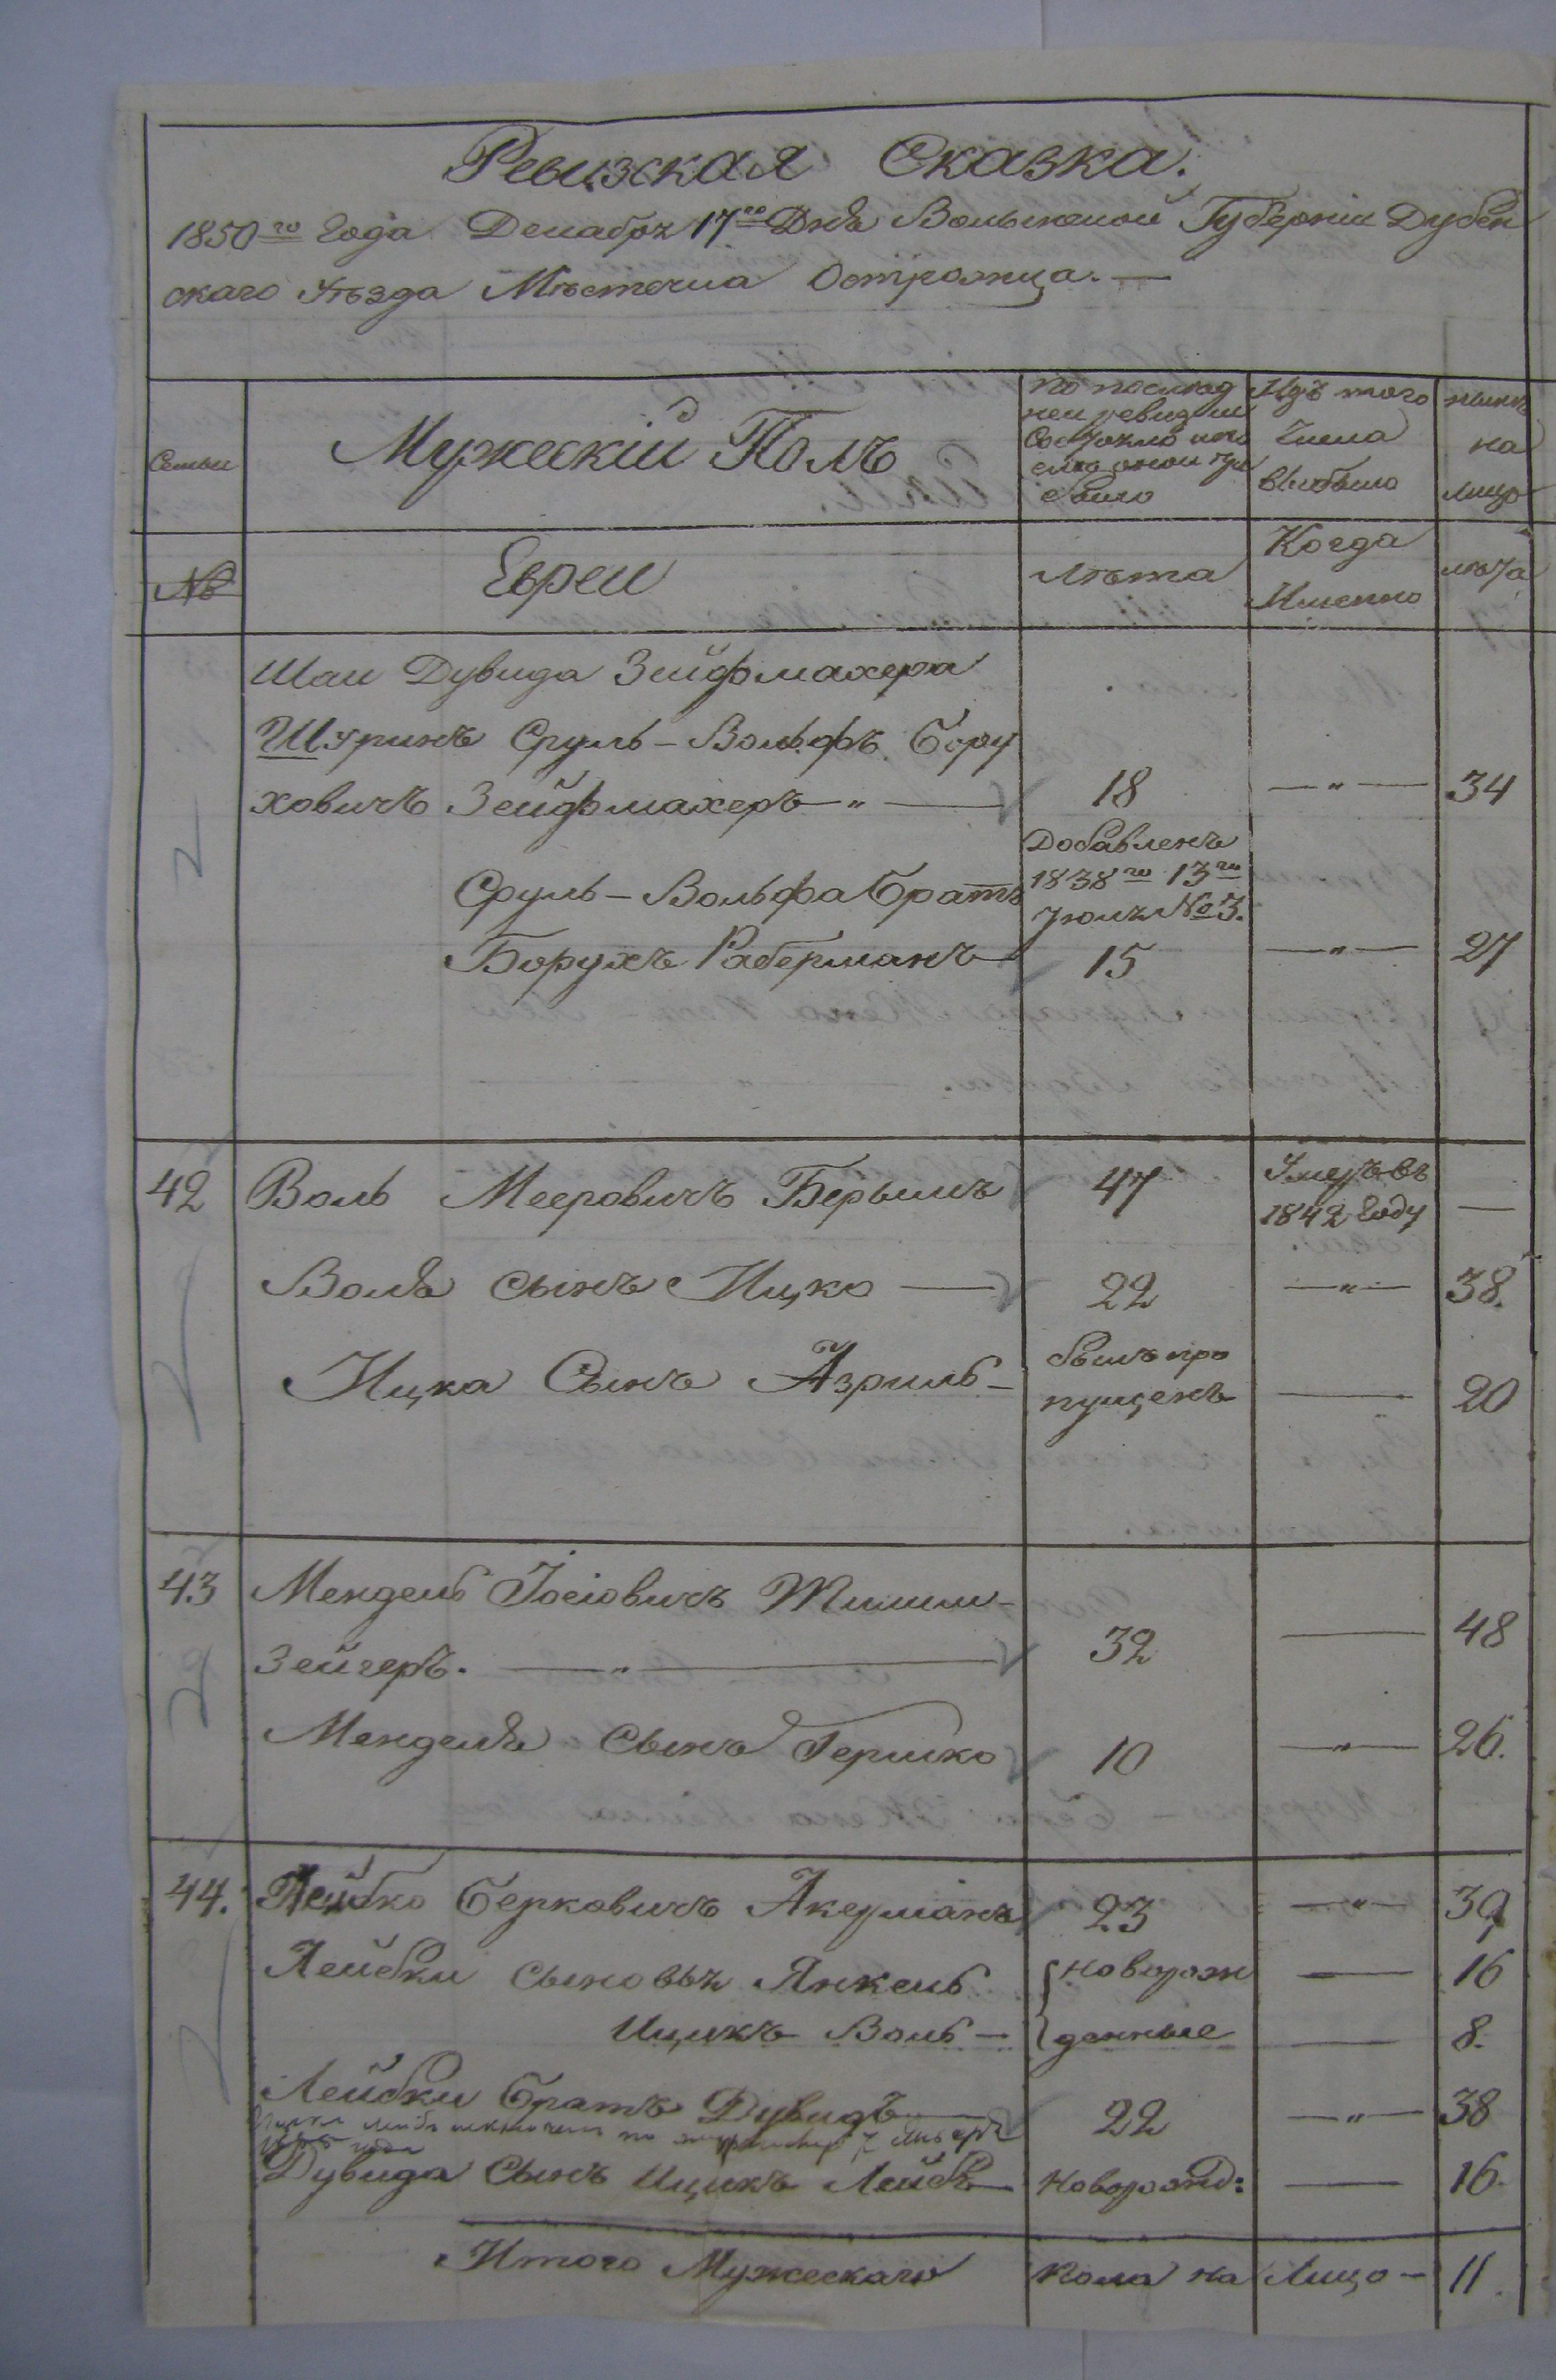 Ревизская Сказка.
1850го Года Декабря 17го Дня Волынской Губерніи Дубен
скаго Уѣзда Мѣстечка Острожца. —
Семьи
Мужескій Полъ
По послѣд
ней ревизіи
Состояло и по
слѣ оной при
было
Изъ того
Числа
выбыло
нынѣ
на
лицо
№
Евреи
Лѣта
Когда
Именно
лѣта
Шаи Дувида Зейфмахера
Шуринъ Сруль - Вольфъ Бору
ховичъ Зейфмахеръ — " — 18 — " — 34
Сруль - Вольфа Братъ
Борухъ Раберманъ
Добавленъ
1838го 13го
Іюля №3.
15 — " — 27
42 Воль Мееровичъ Берышъ 47 Умеръ въ
1842 Году —
Воля сынъ Ицко — 22 — " — 38.
Ицка Сынъ Азриль — былъ про
пущенъ — 20
43 Мендель Іосіовичъ Тишли-
Зейгеръ. — " — 32 — 48
Менделя Сынъ Гершко 10 — " — 26.
44. Лейбко Берковичъ Акерманъ 23 — " — 39
Лейбки сыновья Янкель новорож — 16
Ицикъ Воль — денные — 8.
Лейбки Братъ Дувидъ — 22 — " — 38
Дувида Сынъ Ицикъ Лейбъ — Новорожд: — 16.
Итого Мужескаго пола на Лицо — 11.